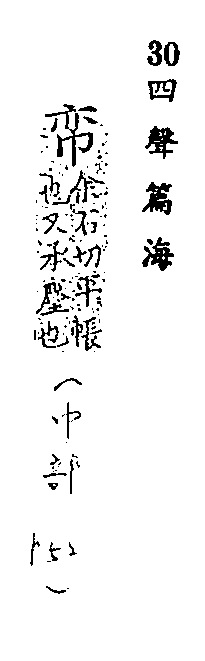 30 四聲篇海
帟
余石切平帳
也又承塵也
(巾部 P52)